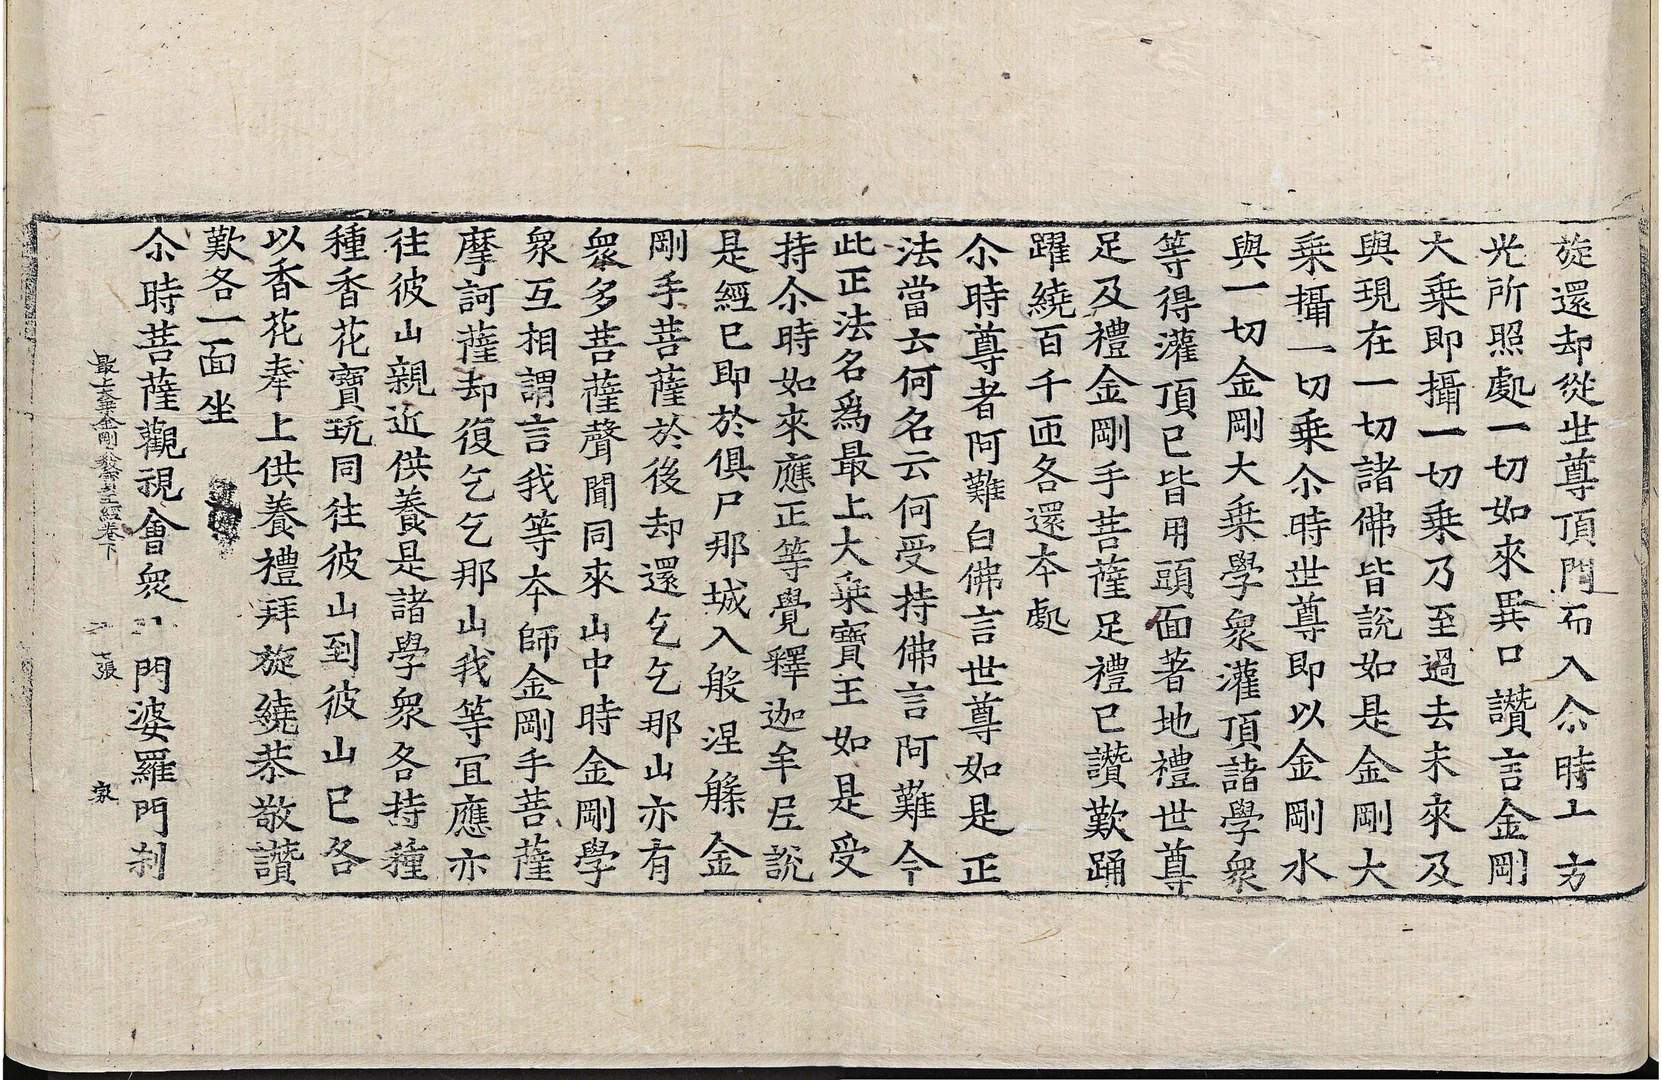 旋還却從世尊頂門而入尒時上方
光所照處一切如來異口讚言金剛
大乗即攝一切乗乃至過去未來及
與現在一切諸佛皆說如是金剛大
乗攝一切乗尒時世尊即以金剛水
與一切金剛大乗學衆灌頂諸學衆
等得灌頂已皆用頭面著地禮世尊
足及禮金剛手菩薩足禮已讚歎踊
躍繞百千匝各還本處
尒時尊者阿難白佛言世尊如是正
法當云何名云何受持佛言阿難今
此正法名爲最上大乗寶王如是受
持尒時如來應正等覺釋迦牟尼說
是經已即於俱尸那城入般涅槃金
剛手菩薩於後却還乞乞那山亦有
衆多菩薩聲聞同來山中時金剛學
衆互相謂言我等本師金剛手菩薩
摩訶薩却復乞乞那山我等宜應亦
往彼山親近供養是諸學衆各持種
種香花寶玩同往彼山到彼山已各
以香花奉上供養禮拜旋繞恭敬讚
歎各一面坐
尒時菩薩觀視會衆門婆羅門刹
最大乗金剛經卷下 七張 家